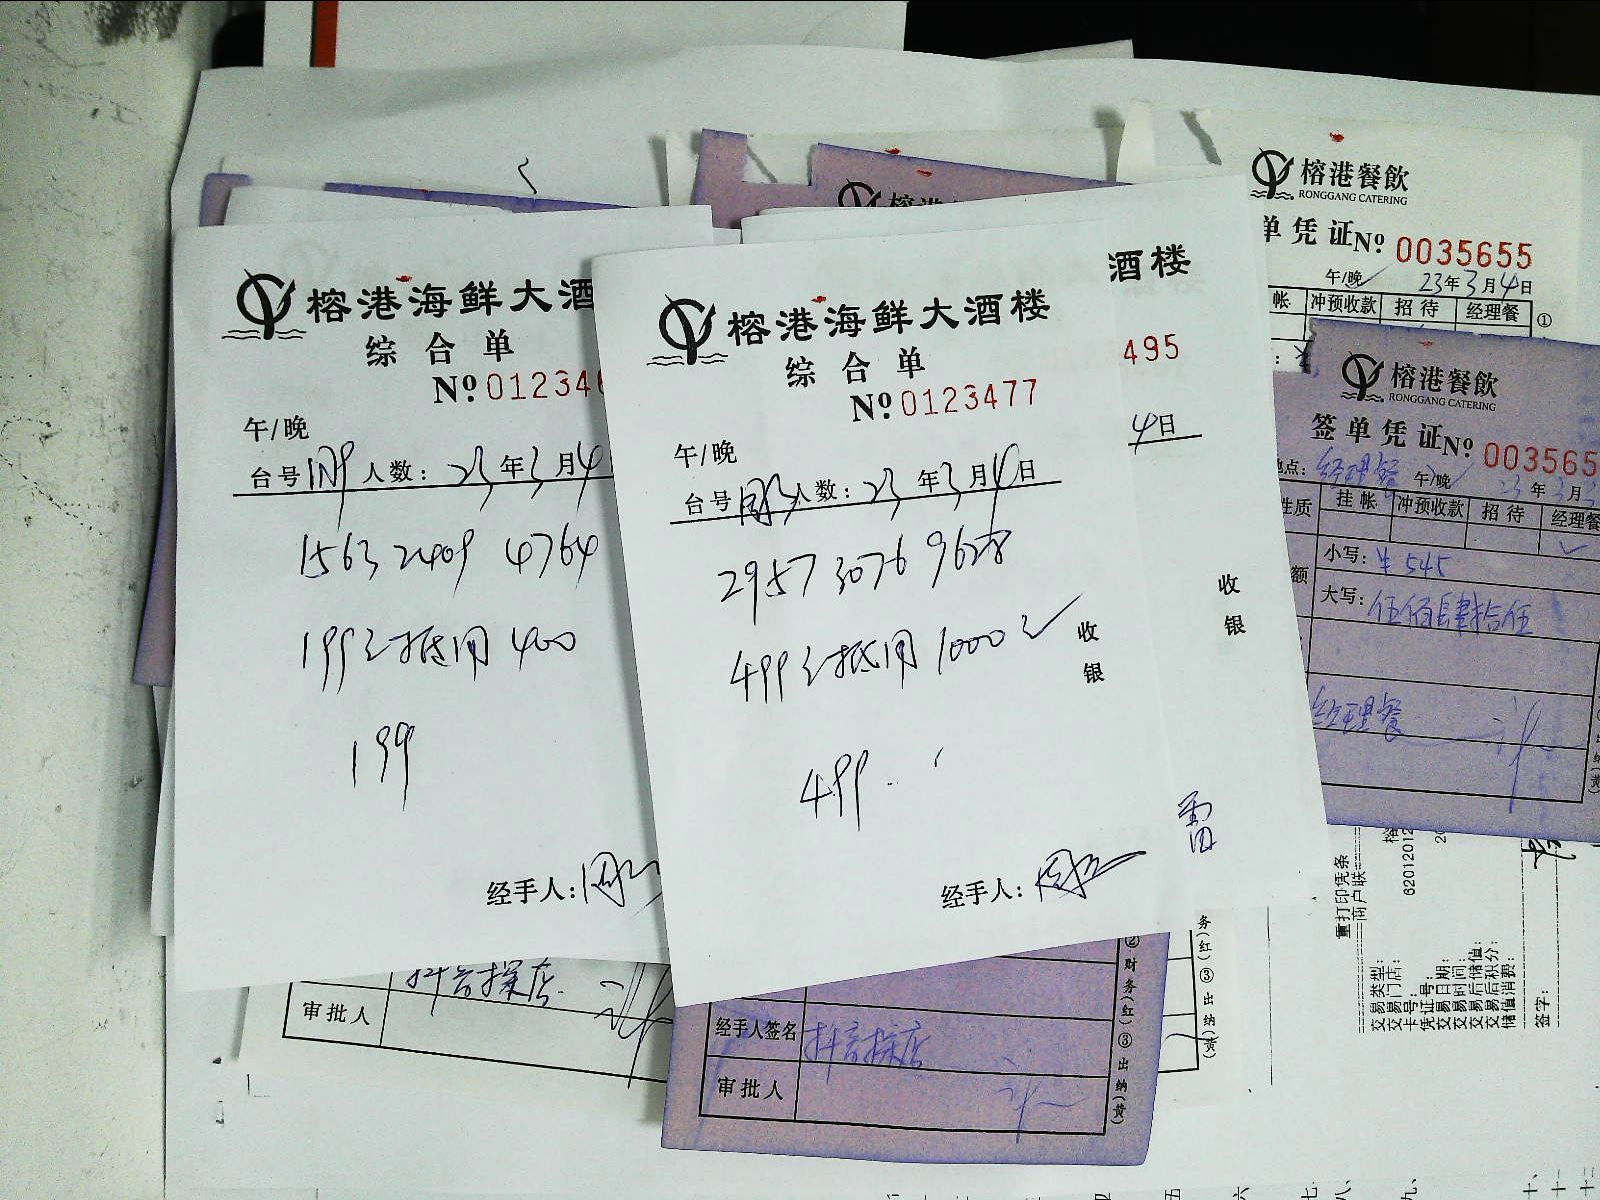 榕港海鲜大酒
综合单
Nº 012346
午/晚
台号 人数: 23年3月4
1563 2409 4764
199元抵用 400
199
经手人:
榕港海鲜大酒楼
综合单
Nº 0123477
午/晚
台号 人数: 23年3月4日
2957 3076 9628
499元抵用 1000元
收银
499
经手人:
酒楼
495
4日
收银
雷
榕港
榕港餐飲
RONGGANG CATERING
单凭证Nº 0035655
午/晚 23年3月4日
帐 冲预收款 招待 经理餐
①
榕港餐飲
RONGGANG CATERING
签单凭证Nº 003565
地点: 经理餐 午/晚 23年3月
性质 挂帐 冲预收款 招待 经理餐
额 小写: ¥545
大写: 伍佰肆拾伍
经理餐
纳(黄)
抖音探店
审批人
经手人签名 抖音探店
审批人
②财务(红)③出纳(黄)
务(红)③出纳(黄)
重打印凭条
商户联
交易类型:
交易门店:
卡号: 62012012
凭证号:
交易日期:
交易时间:
交易后储值:
交易后积分:
储值消费:
签字:
四 五 六 七、八、九、十、十一 十二